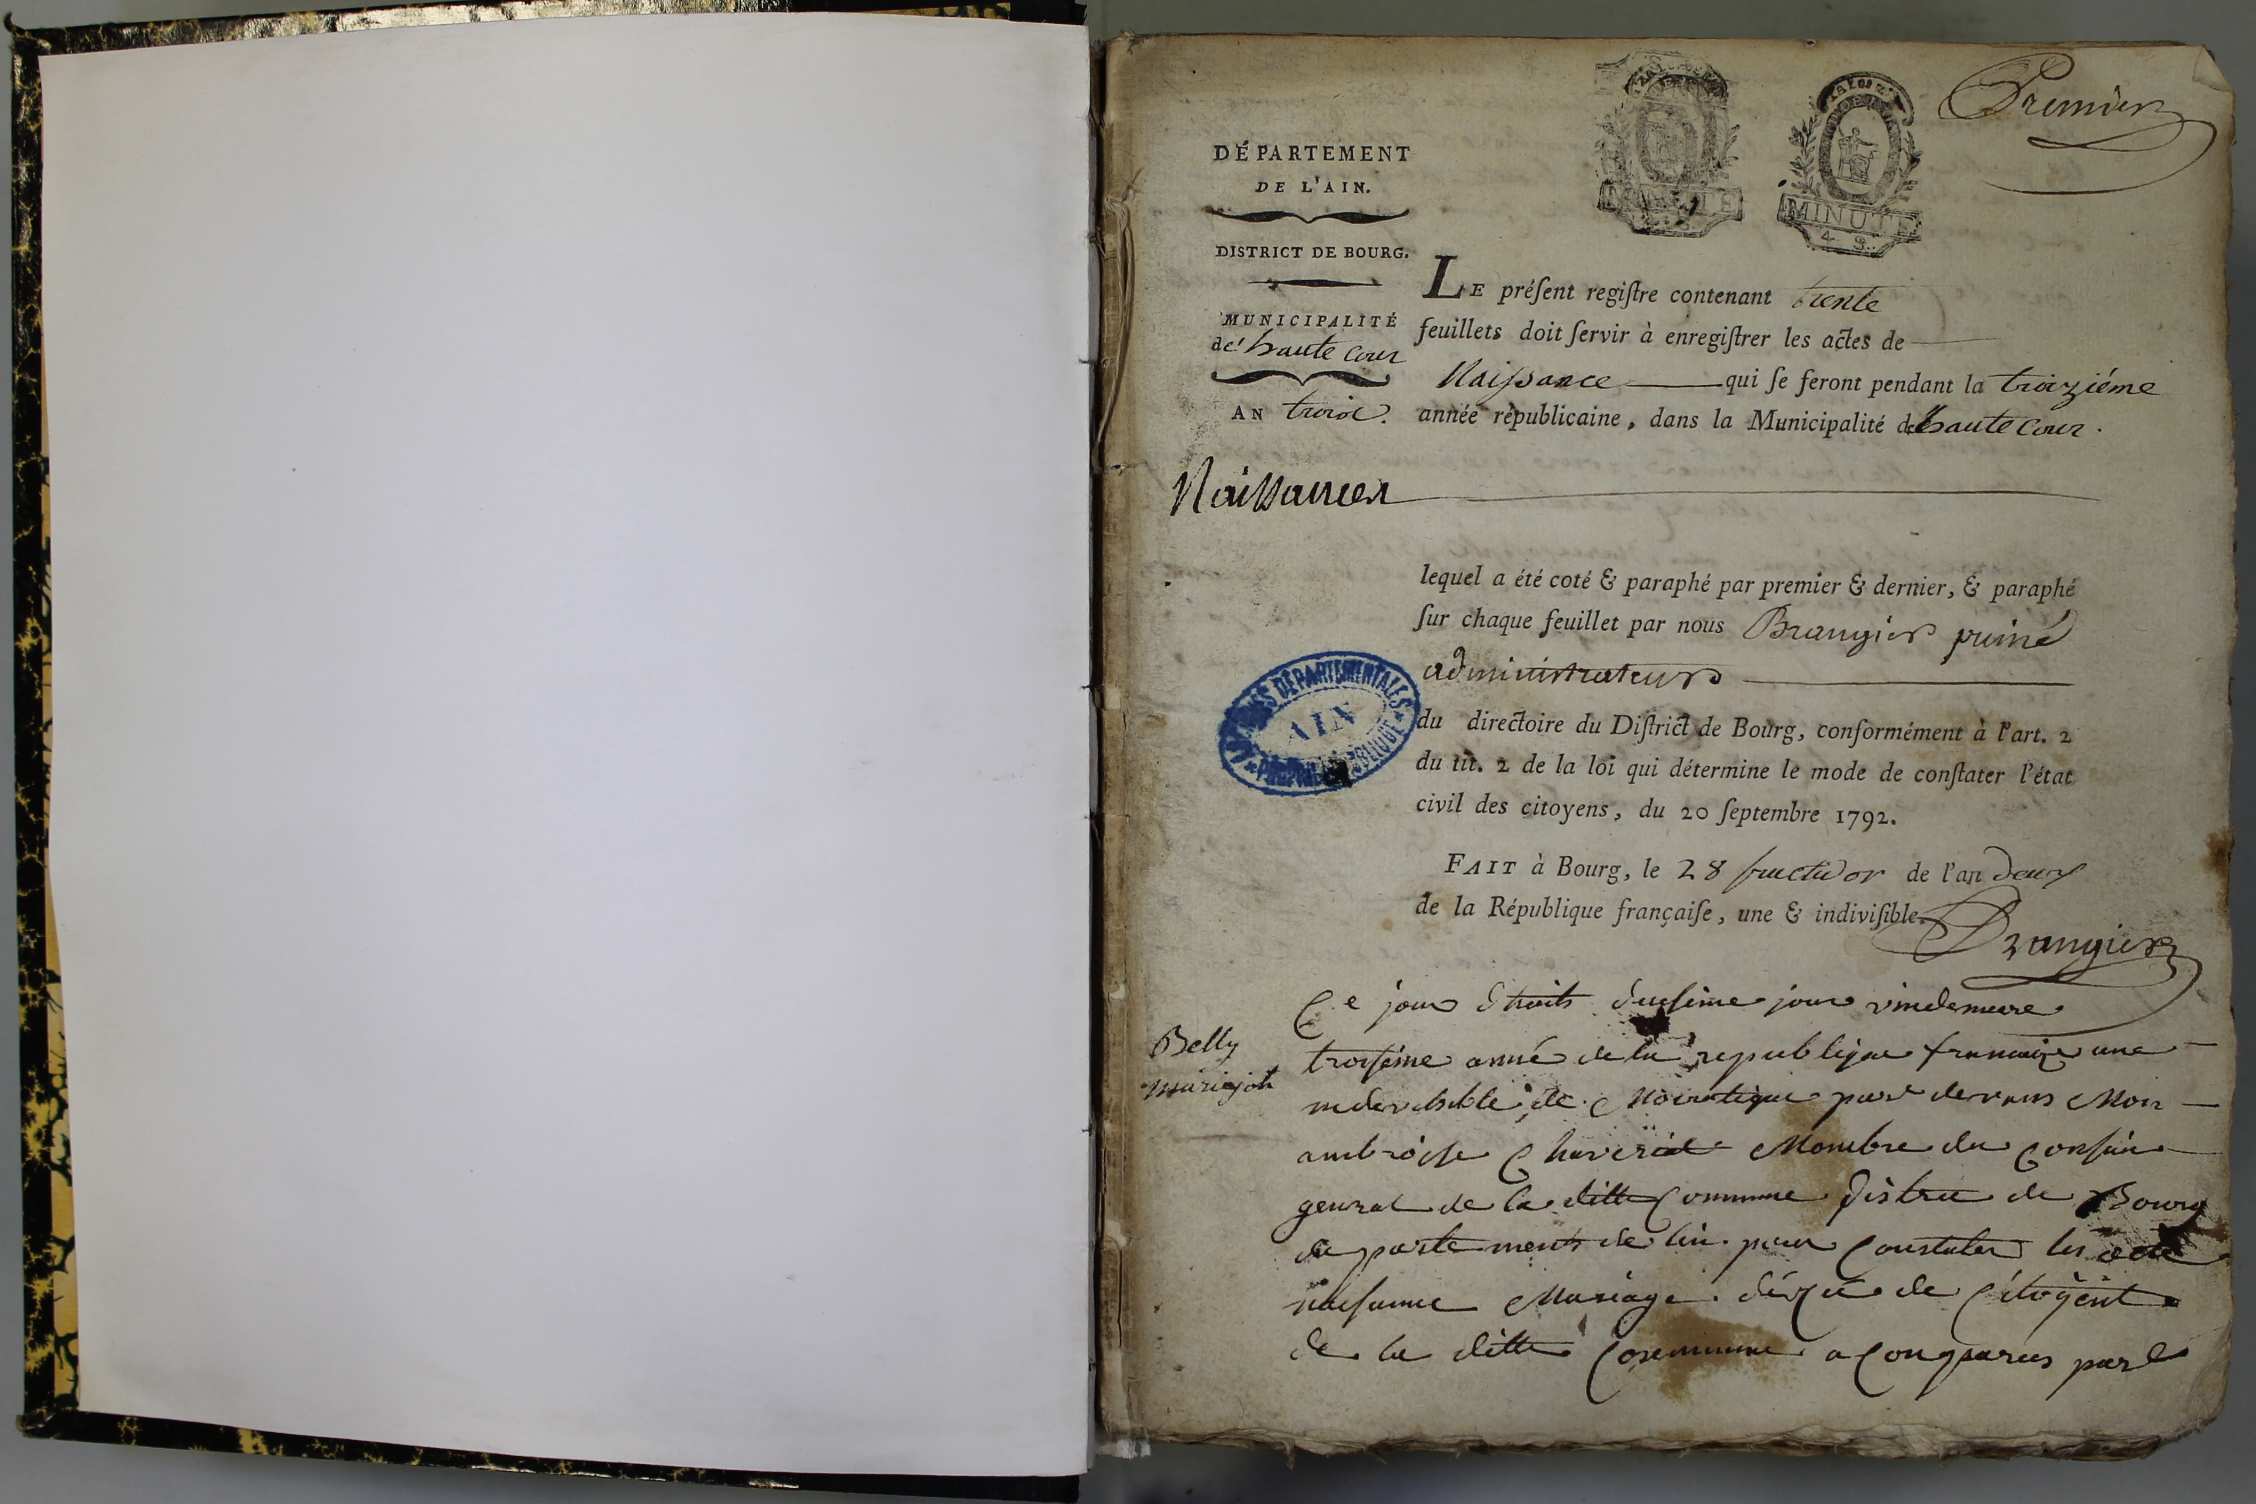 Premier
MINUTE
4 S.
DÉPARTEMENT
DE L'AIN.
DISTRICT DE BOURG.
MUNICIPALITÉ
de haute Cour
AN trois.
LE préſent regiſtre contenant trente
feuillets doit ſervir à enregiſtrer les actes de
Naissance qui ſe feront pendant la troiziéme
année républicaine, dans la Municipalité de haute Cour.
Naissances
lequel a été coté & paraphé par premier & dernier, & paraphé
ſur chaque feuillet par nous Brangier puiné
administrateur
du directoire du Diſtrict de Bourg, conformément à l'art. 2
du tit. 2 de la loi qui détermine le mode de conſtater l'état
civil des citoyens, du 20 ſeptembre 1792.
FAIT à Bourg, le 28 fructidor de l'an deux
de la République françaiſe, une & indiviſible.
Brangier
ARCHIVES DÉPARTEMENTALES
AIN
PROPRIÉTÉ PUBLIQUE
Belly
Ce jour jour
troisiéme anné de la republique francaize une
par devans Moi
ambroise Membre du
general de la ditte Commune distric de Bourg
departements de lin pour Constater les acte
naisance Mariage déçée de Citoÿent
de la ditte Commune a Comparus par